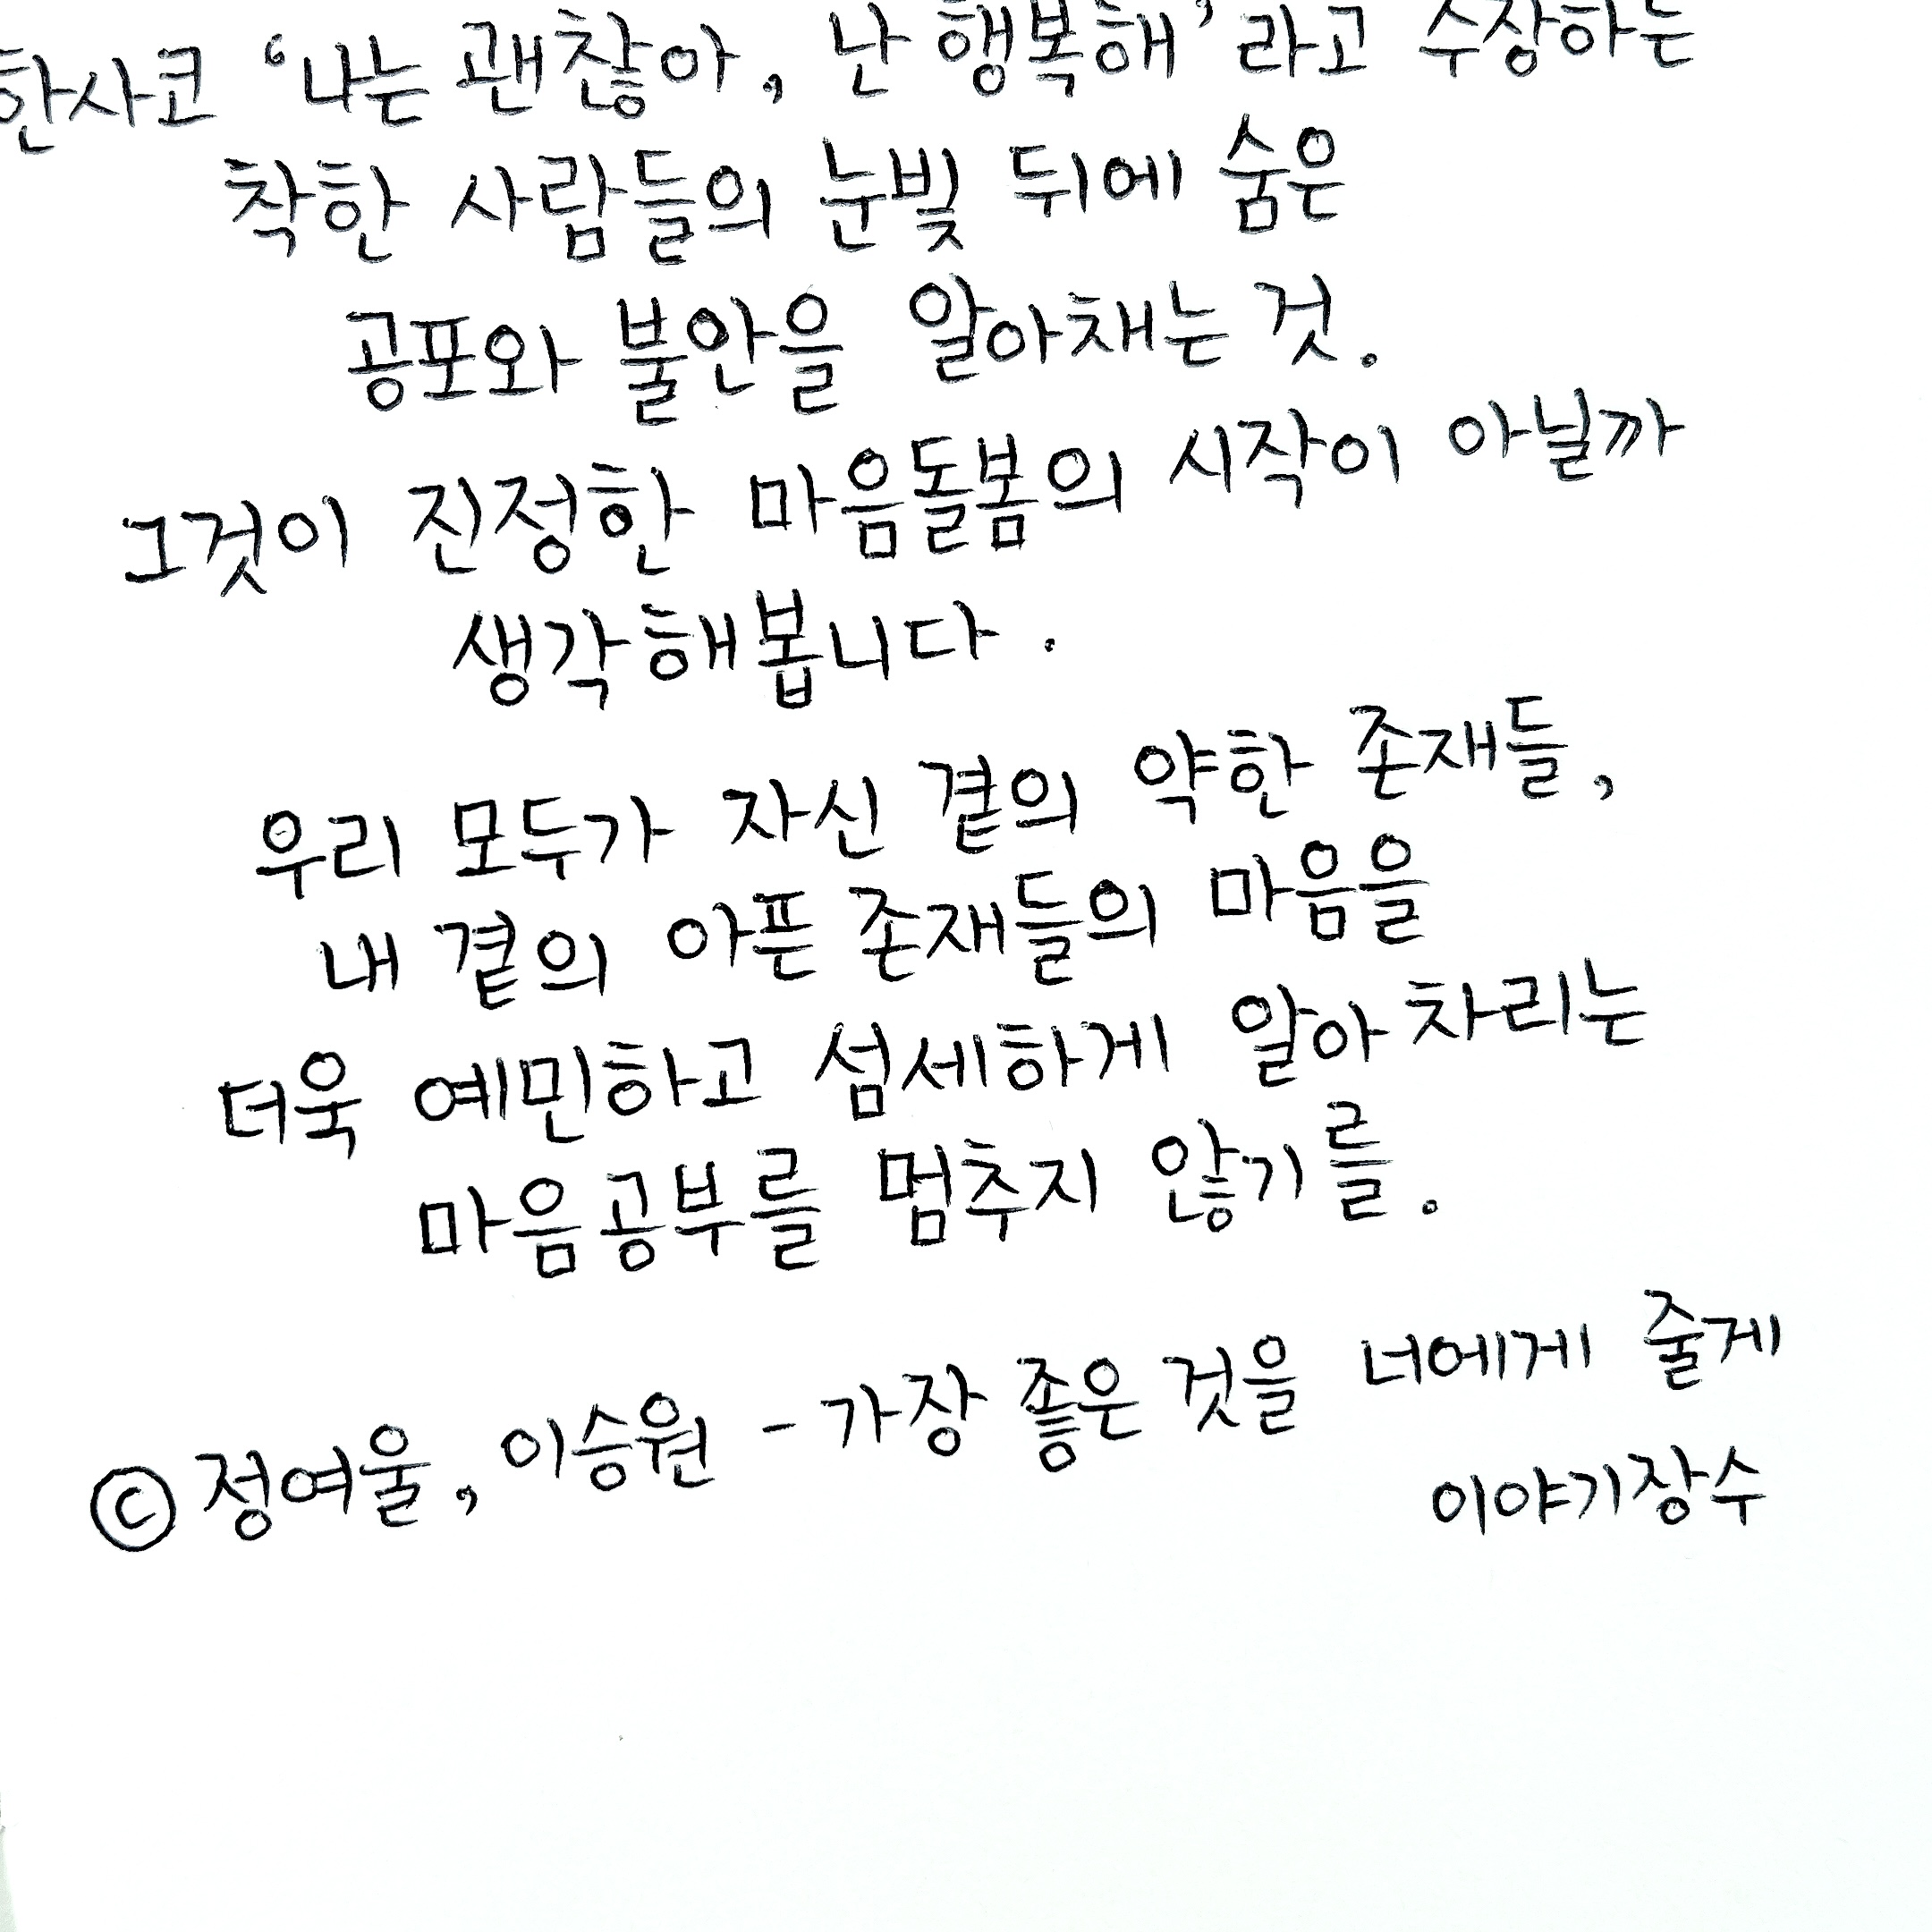 한사코 ‘나는 괜찮아, 난 행복해’라고 주장하는
착한 사람들의 눈빛 뒤에 숨은
공포와 불안을 알아채는 것.
그것이 진정한 마음돌봄의 시작이 아닐까
생각해봅니다.
우리 모두가 자신 곁의 약한 존재들,
내 곁의 아픈 존재들의 마음을
더욱 예민하고 섬세하게 알아차리는
마음공부를 멈추지 않기를.
ⓒ 정여울, 이승원 - 가장 좋은 것을 너에게 줄게
이야기장수